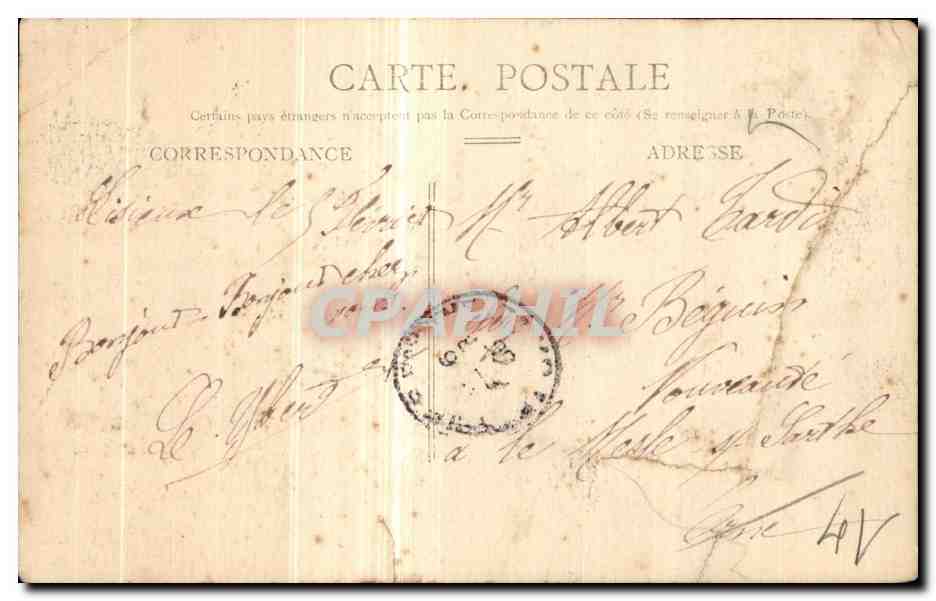 CARTE POSTALE
Certains pays étrangers n'acceptent pas la Correspondance de ce côté (Se renseigner à la Poste).
CORRESPONDANCE
ADRESSE
Lisieux le 5 Février
Bonjour Bonjour cher
Mr Albert Tardif
Mr Béguin
Nouveauté
a le Mesle s/ Sarthe
Orne
4V
CPAPHIL